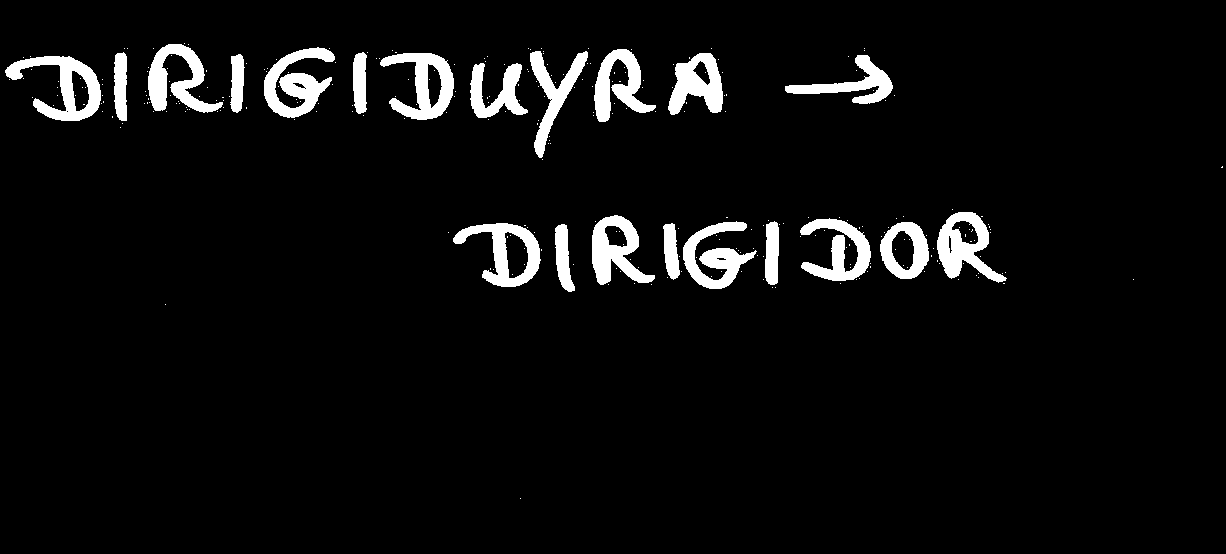 DIRIGIDUYRA →
DIRIGIDOR